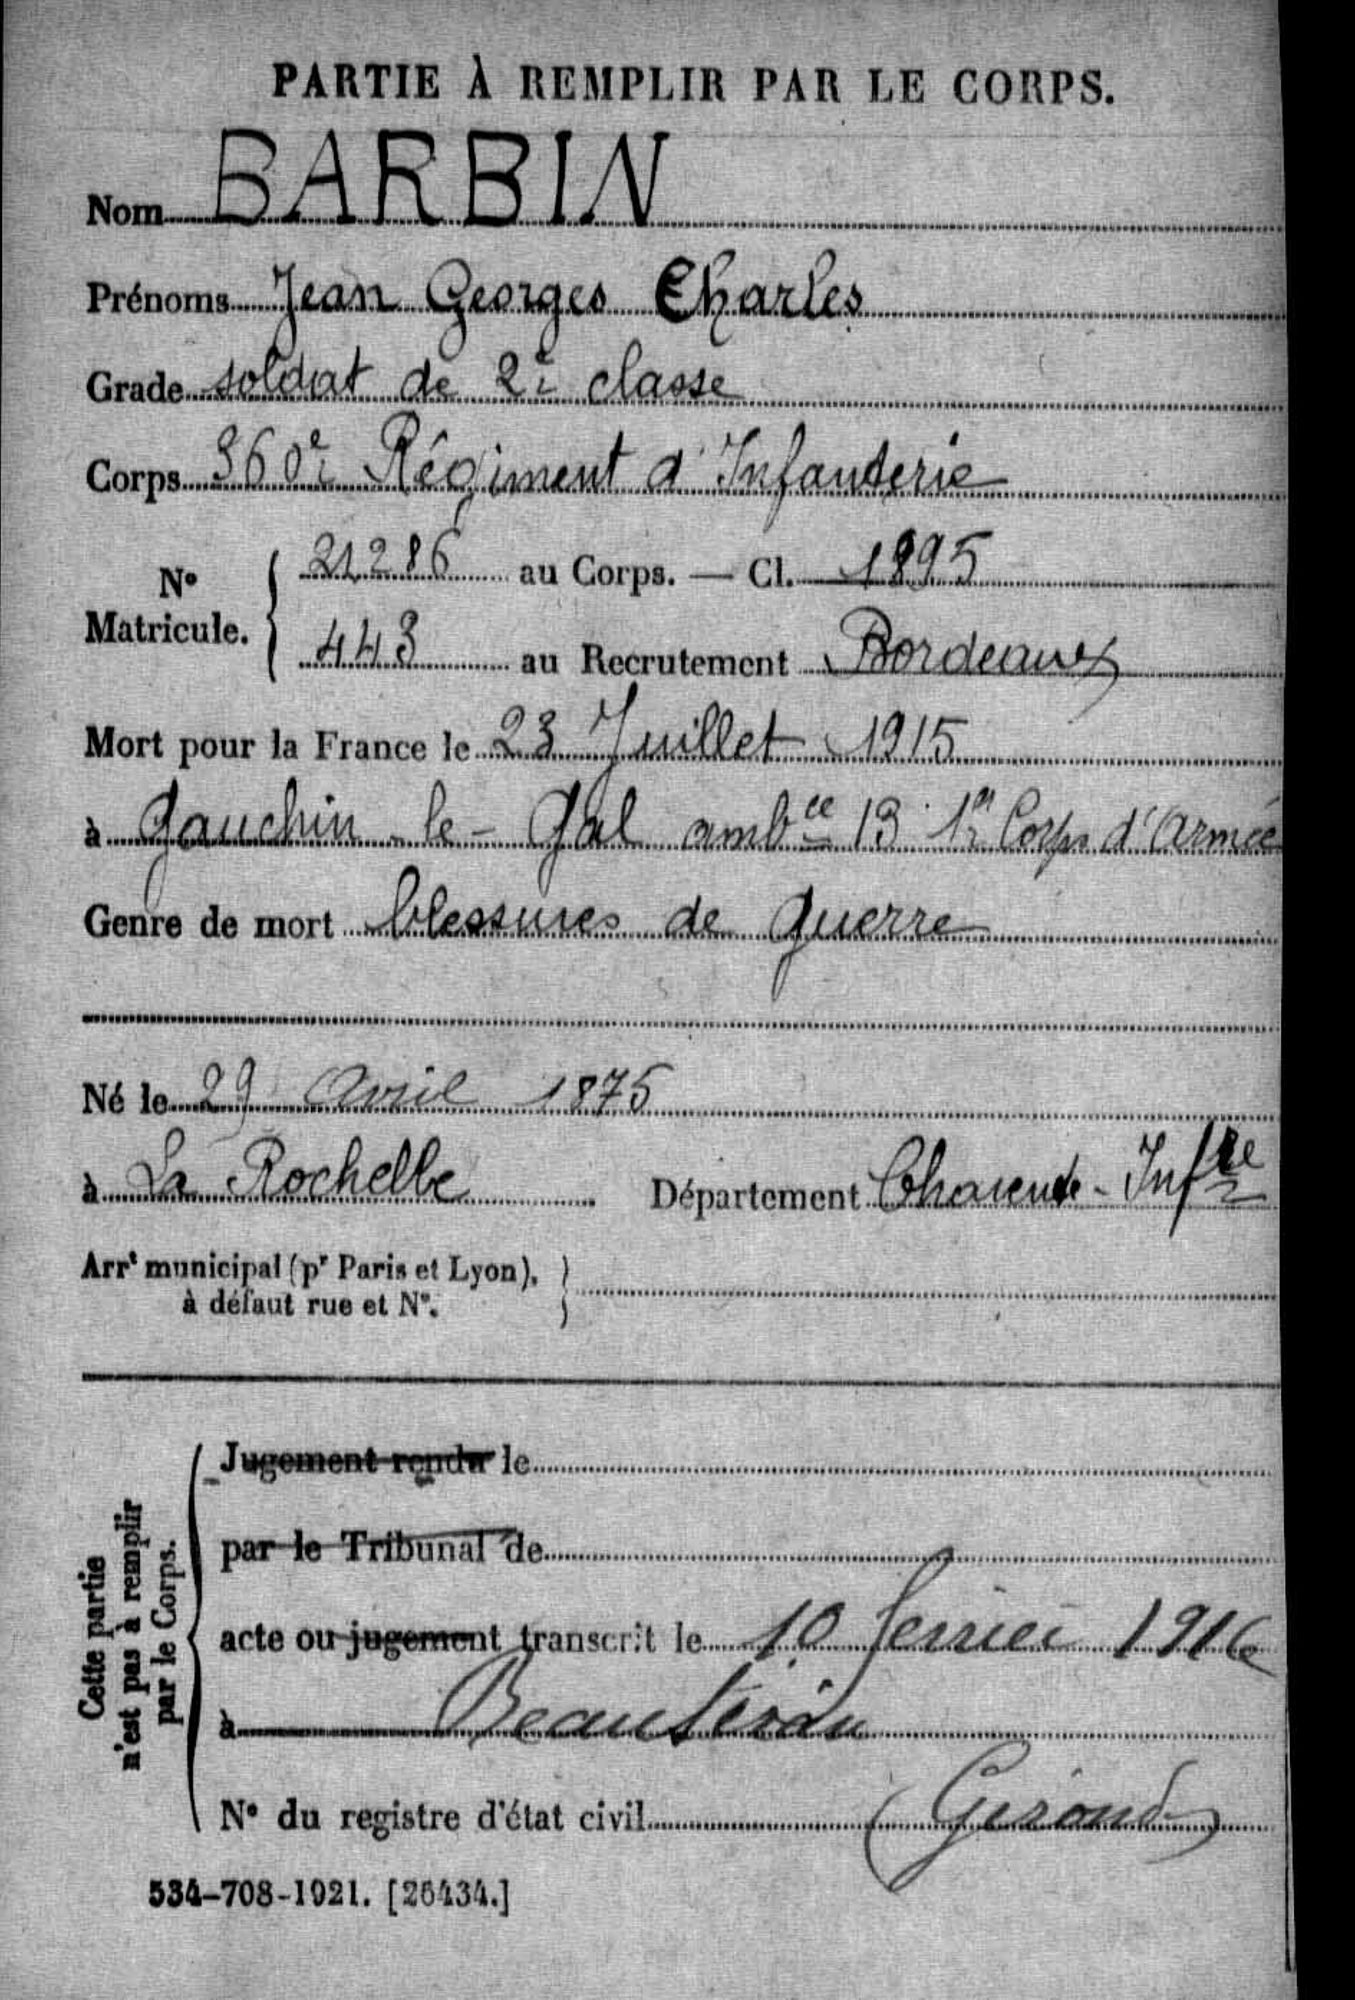 PARTIE À REMPLIR PAR LE CORPS.
Nom BARBIN
Prénoms Jean Georges Charles
Grade soldat de 2e classe
Corps 360e Régiment d'Infanterie
N° Matricule. 21286 au Corps. — Cl. 1895
443 au Recrutement Bordeaux
Mort pour la France le 23 Juillet 1915
à Gauchin-le-Gal ambce 13 1er Corps d'Armée
Genre de mort blessures de guerre
Né le 29 Avril 1875
à La Rochelle Département Charente-Infre
Arrt municipal (pr Paris et Lyon),
à défaut rue et N°.
Cette partie
n'est pas à remplir
par le Corps.
Jugement rendu le
par le Tribunal de
acte ou jugement transcrit le 10 février 1916
à
N° du registre d'état civil (Gironde)
534-708-1921. [26434.]